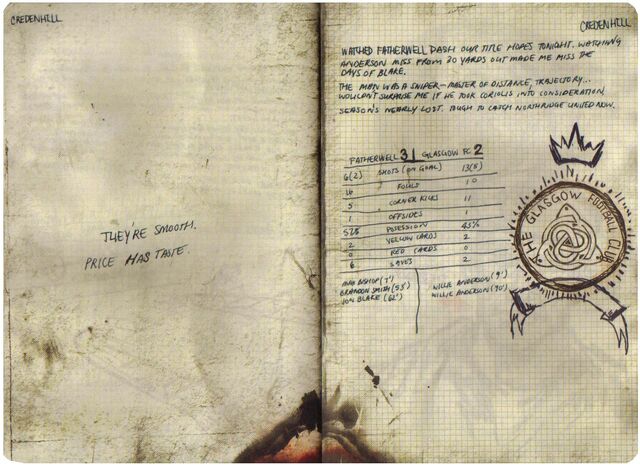 CREDENHILL
THEY'RE SMOOTH.
PRICE HAS TASTE.
CREDENHILL
WATCHED FATHERWELL DASH OUR TITLE HOPES TONIGHT. WATCHING
ANDERSON MISS FROM 30 YARDS OUT MADE ME MISS THE
DAYS OF BLAKE.
THE MAN WAS A SNIPER - MASTER OF DISTANCE, TRAJECTORY...
WOULDN'T SURPRISE ME IF HE TOOK CORIOLIS INTO CONSIDERATION.
SEASON'S NEARLY LOST. TOUGH TO CATCH NORTHRIDGE UNITED NOW.
FATHERWELL 3 | GLASGOW FC 2
6(2) SHOTS (ON GOAL) 13(5)
16 FOULS 10
5 CORNER KICKS 11
1 OFFSIDES 1
52% POSESSION 45%
2 YELLOW CARDS 2
0 RED CARDS 0
6 SAVES 2
BISHOP (7')
BRANDON SMITH (53')
JON BLAKE (62')
WILLIE ANDERSON (9')
WILLIE ANDERSON (90')
THE GLASGOW FOOTBALL CLUB